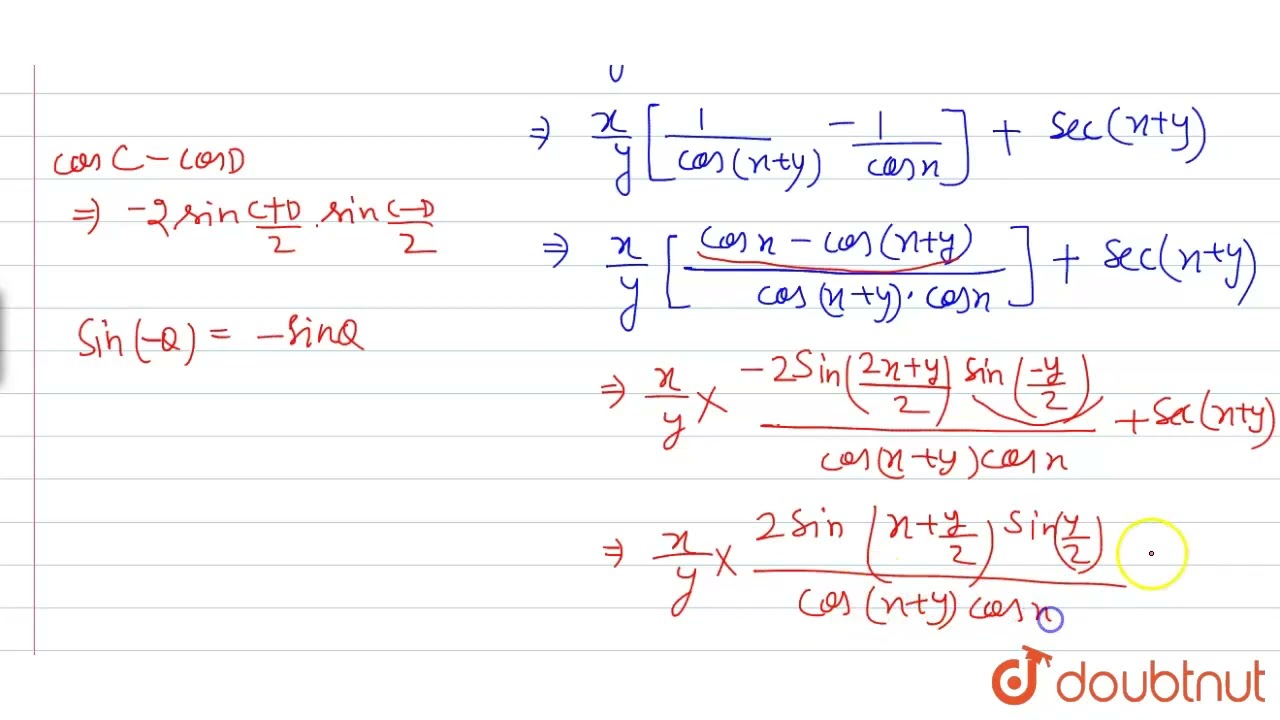 cos C - cos D
⇒ -2 sin (C+D)/2 . sin (C-D)/2
Sin(-Q) = -sinQ
⇒ x/y [ 1/cos(x+y) - 1/cos x ] + sec(x+y)
⇒ x/y [ (cos x - cos(x+y)) / (cos(x+y) . cos x) ] + sec(x+y)
⇒ x/y × (-2 Sin((2x+y)/2) sin(-y/2)) / (cos(x+y) cos x) + sec(x+y)
⇒ x/y × (2 sin(x + y/2) sin(y/2)) / (cos(x+y) cos x)
doubtnut